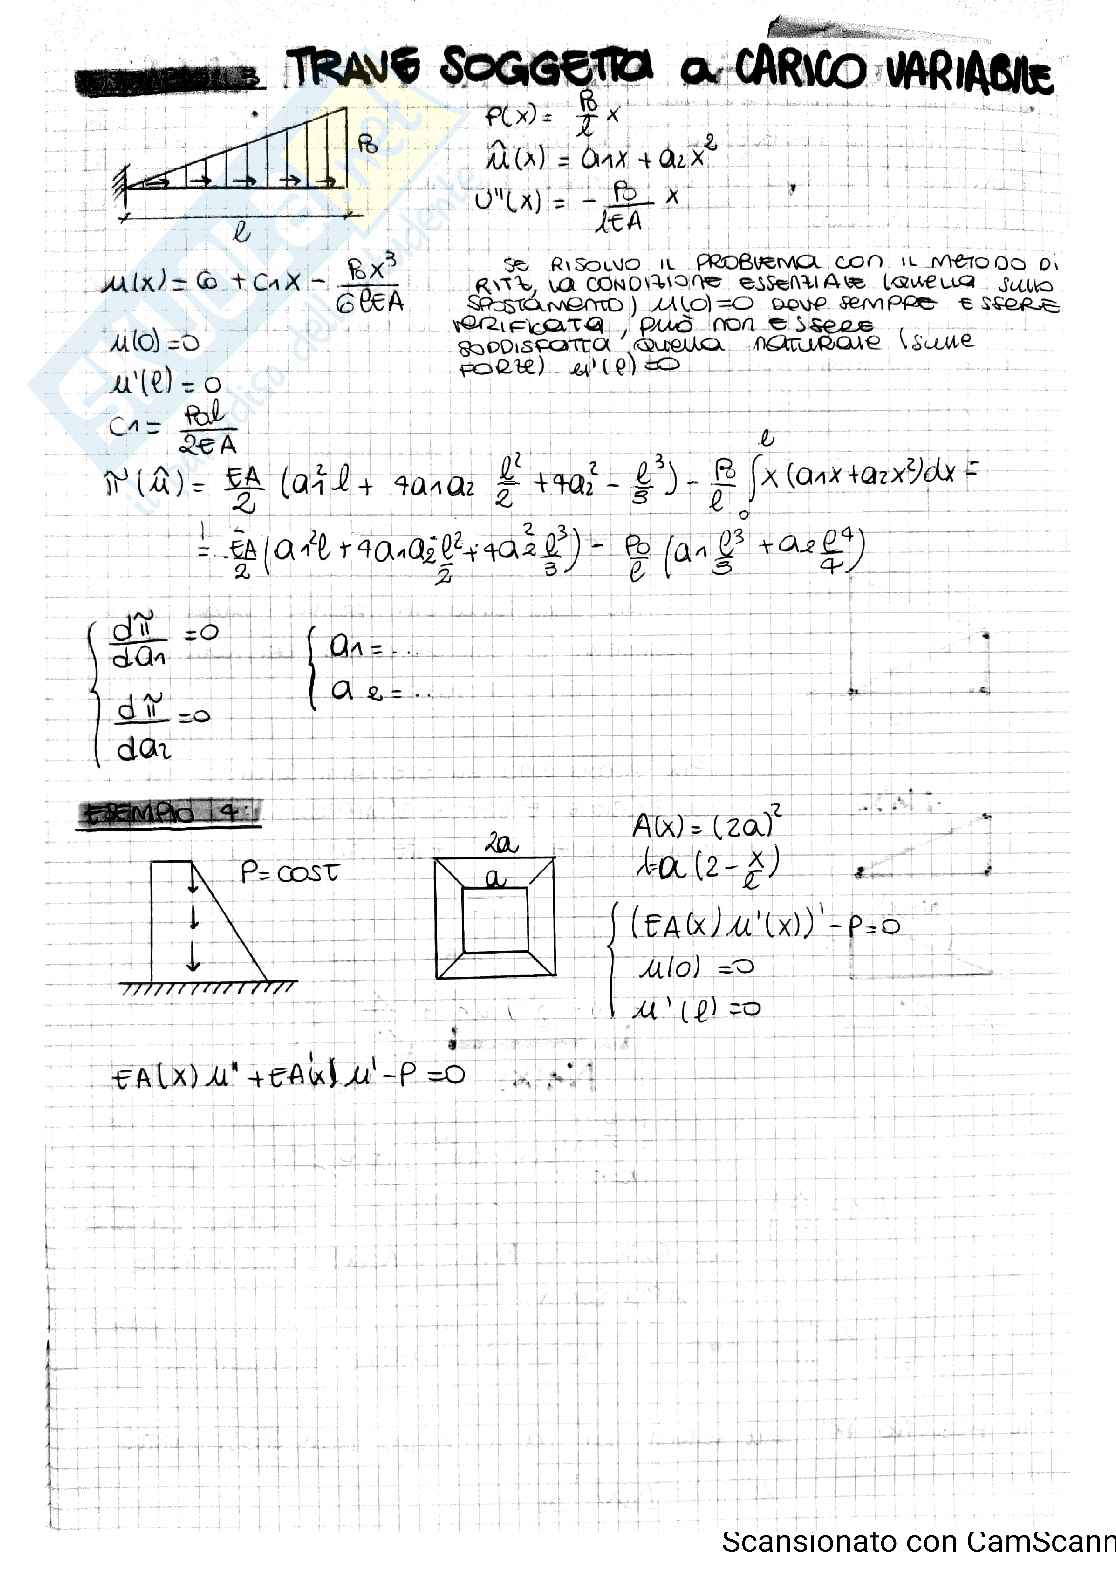 3 TRAVE SOGGETTA a CARICO VARIABILE
P(x) = P0/l x
û(x) = a1x + a2x²
U''(x) = - P0/lEA x
P0
l
u(x) = C0 + C1x - P0x³/6lEA
u(0)=0
u'(l)=0
C1 = P0l/2EA
SE RISOLVO IL PROBLEMA CON IL METODO DI
RITZ, LA CONDIZIONE ESSENZIALE (quella sullo
SPOSTAMENTO) u(0)=0 DEVE SEMPRE ESSERE
VERIFICATA, può non ESSERE
SODDISFATTA quella naturale (sulle
FORZE) u'(l)=0
π̃(û) = EA/2 (a1²l + 4a1a2 l²/2 + 4a2² - l³/3) - P0/l ∫₀ˡ x(a1x+a2x²)dx =
= EA/2 (a1²l + 4a1a2 l²/2 + 4a2² l³/3) - P0/l (a1 l³/3 + a2 l⁴/4)
{ dπ̃/da1 = 0
dπ̃/da2 = 0
{ a1 = ...
a2 = ...
ESEMPIO 4:
P = COST
2a
a
A(x) = (2a)²
ta(2 - x/l)
{ (EA(x) u'(x))' - P = 0
u(0) = 0
u'(l) = 0
EA(x) u'' + EA'(x) u' - P = 0
Scansionato con CamScann